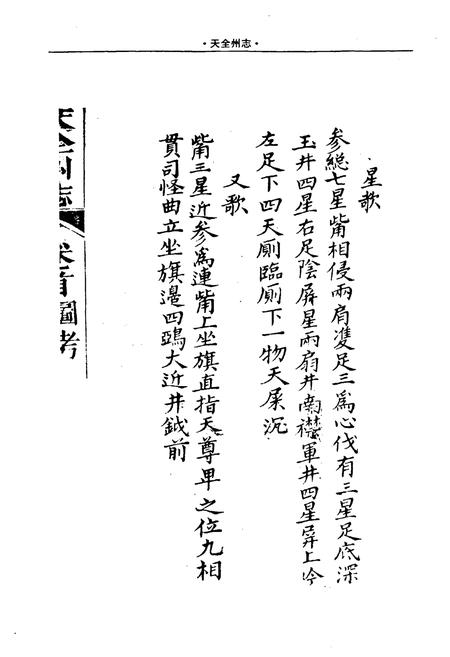 ·天全州志·
星歌
参総七星觜相侵兩肩䨇足三為心伐有三星足底深
玉井四星右足陰屏星兩扇井南襟軍井四星屏上吟
左足下四天厠臨厠下一物天屎沉
又歌
觜三星近参為連觜上坐旗直指天尊卑之位九相
貫司怪曲立坐旗邊四鵶大近井鉞前
天全州志 卷首 圖考